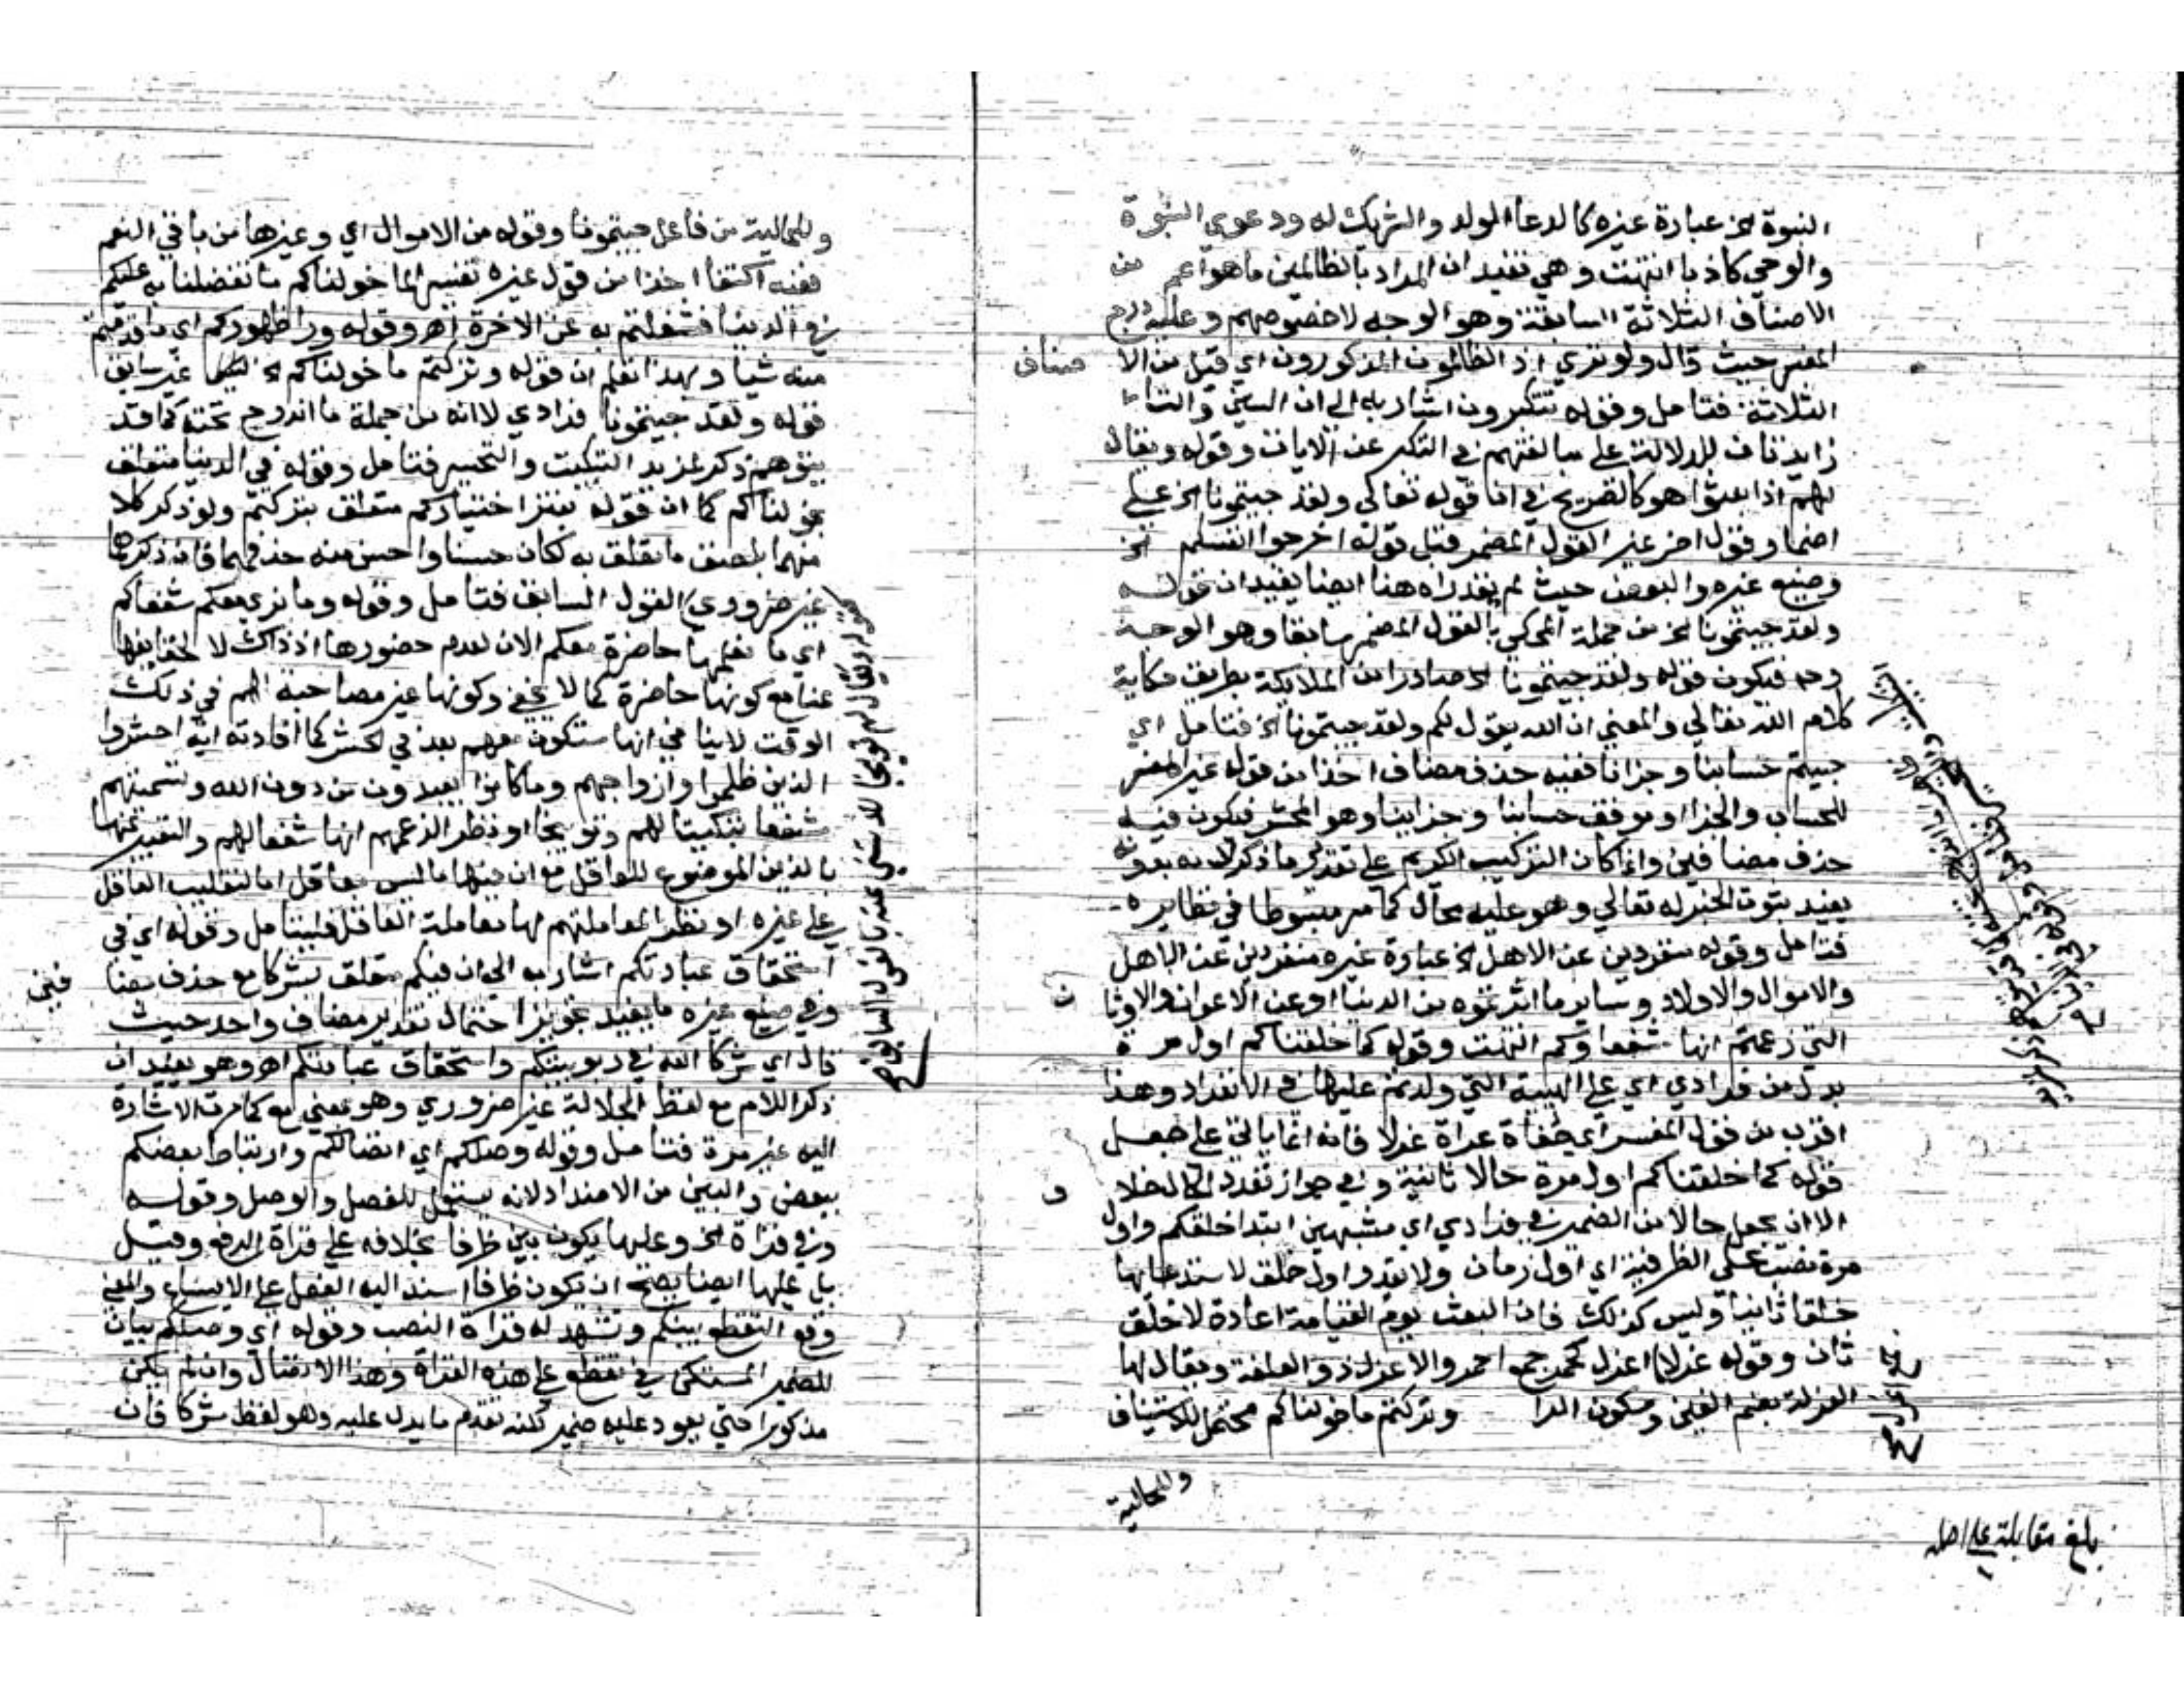 النبوة الخ عبارة غيره كالدعا الولد والشريك له ودعوي النبوة
والوحي كاذبا انتهت وهي تفيد ان المراد بالظالمين ما هو اعم من
الاصناف الثلاثة السابقة وهو الوجه لا خصوصهم وعليه درج
المفسر حيث قال ولو تري اذ الظالمون المذكورون اي قبل من الا صناف
الثلاثة فتامل وقوله تتكبرون اشار به الي ان السين والتا
زايدتان للدلالة علي مبالغتهم في التكبر عن الايات وقوله ويقال
لهم اذا بعثوا هو كالصريح في ان قوله تعالي ولقد جيتمونا الخ علي
اضمار قول اخر غير القول المضمر قبل قوله اخرجوا انفسكم الخ
وصنيع غيره والبعض حيث لم يقدراه هنا ايضا يفيد ان قوله
ولقد جيتمونا الخ من جملة المحكي بالقول المضمر سابقا وهو الوجه
وح فيكون قوله ولقد جيتمونا الخ صادرا من الملايكة بطريق حكاية
كلام الله تعالي والمعني ان الله يقول لكم ولقد جيتمونا الخ فتامل اي
جيتم حسابنا وجزانا ففيه حذف مضاف اخذا من قوله غير المفسر
للحساب والجزا او موقف حسابنا وجزاينا وهو المحشر فيكون فيه
حذف مضافين وانما كان التركيب الكريم علي تقدير ما ذكر لانه بدونه
يفيد ثبوت الحيز له تعالي وهو عليه محال كما مر مبسوطا في نظايره
فتامل وقوله منفردين عن الاهل الخ عبارة غيره منفردين عن الاهل
والاموال والاولاد وساير ما اثرتموه من الدنيا او عن الاعوان والاوثا ن
التي زعمتم انها شفعاؤكم انتهت وقوله كما خلقناكم اول مرة
بدل من فرادي اي علي الهيية التي ولدتم عليها في الانفراد وهذا
اقرب من قول المفسر اي حفاة عراة غرلا فانه انما ياتي علي جعل
قوله كما خلقناكم اول مرة حالا ثانية وفي جواز تعدد الحال خلا ف
الا ان يجعل حالا من الضمير في فرادي اي مشبهين ابتدا خلقكم واول
مرة نصب علي الظرفية اي اول زمان ولا يقدر اول خلق لاستدعايها
خلقا ثانيا وليس كذلك فان البعث يوم القيامة اعادة لا خلق
ثان وقوله غرلا اغرل كحمر جمع احمر والاغرل ذو الغلفة ويقال لها
الغرلة بضم الغين وسكون الرا وتركتم ما خولناكم محتمل للاستيناف
والحالية
بلغ مقابلة علي اصله
وللحالية من فاعل جيتمونا وقوله من الاموال اي وغيرها من باقي النعم
ففيه اكتفا اخذا من قول غيره تفسيرا لما خولناكم ما تفضلنا به عليكم
في الدنيا فشغلتم به عن الاخرة اهـ وقوله ورا ظهوركم اي ما قدمتم
منه شيا وبهذا تعلم ان قوله وتركتم ما خولناكم الخ غير سابق
قوله ولقد جيتمونا فرادي لا انه من جملة ما اندرج تحته كما قد
يتوهم ذكر لمزيد التبكيت والتحسير فتامل وقوله في الدنيا متعلق
بخولناكم كما ان قوله بغير اختياركم متعلق بتركتم ولو ذكر كلا
منهما بلصق ما تعلق به لكان حسنا واحسن منه حذفهما فان ذكرهما
غير ضروري القول السابق فتامل وقوله وما نري معكم شفعاكم
اي ما نعلمها حاضرة معكم الان لعدم حضورها اذ ذاك لا لخفايها
عنا مع كونها حاضرة كما لا يخفي وكونها غير مصاحبة لهم في ذلك
الوقت لا ينافي انها ستكون معهم بعد في الحشر كما افادته اية احشروا
الذين ظلموا وازواجهم وما كانوا يعبدون من دون الله وتسميتهم
شفعا تبكيتا لهم وتوبيخا او نظرا لزعمهم انها شفعا لهم والتعبير عنها
بالذين الموضوع للعاقل مع ان منها ما ليس بعاقل اما لتغليب العاقل
علي غيره او نظرا لمعاملتهم لها معاملة العاقل فليتامل وقوله اي في
استحقاق عبادتكم اشار به الي ان فيكم متعلق بشركا مع حذف مضا فين
وفي صنيع غيره ما يفيد تجويز احتمال تقدير مضاف واحد حيث
قال اي شركا الله في ربوبيتكم واستحقاق عبادتكم اهـ وهو يفيد ان
ذكر اللام مع لفظ الجلالة غير ضروري وهو معني مع كما مرت الاشارة
اليه غير مرة فتامل وقوله وصلكم اي اتصالكم وارتباط بعضكم
ببعض والبين من الاضداد لانه يستعمل للفصل والوصل وقوله
وفي قراة الخ وعليها يكون بين ظرفا بخلافه علي قراة الرفع وقيل
بل عليها ايضا يصح ان يكون ظرفا اسند اليه الفعل علي الاتساع والمعني
وقع التقطع بينكم وتشهد له قراة النصب وقوله اي وصلكم بيان
للضمير المستكن في تقطع علي هذه القراة وهذا الاتصال وان لم يكن
مذكورا حتي يعود عليه ضمير لكنه تقدم ما يدل عليه وهو لفظ شركا فان